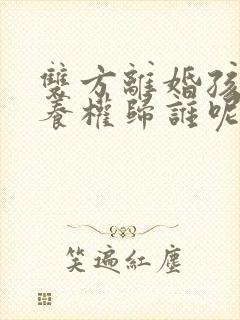 雙方離婚孩
養權歸誰呢
笑遍紅塵